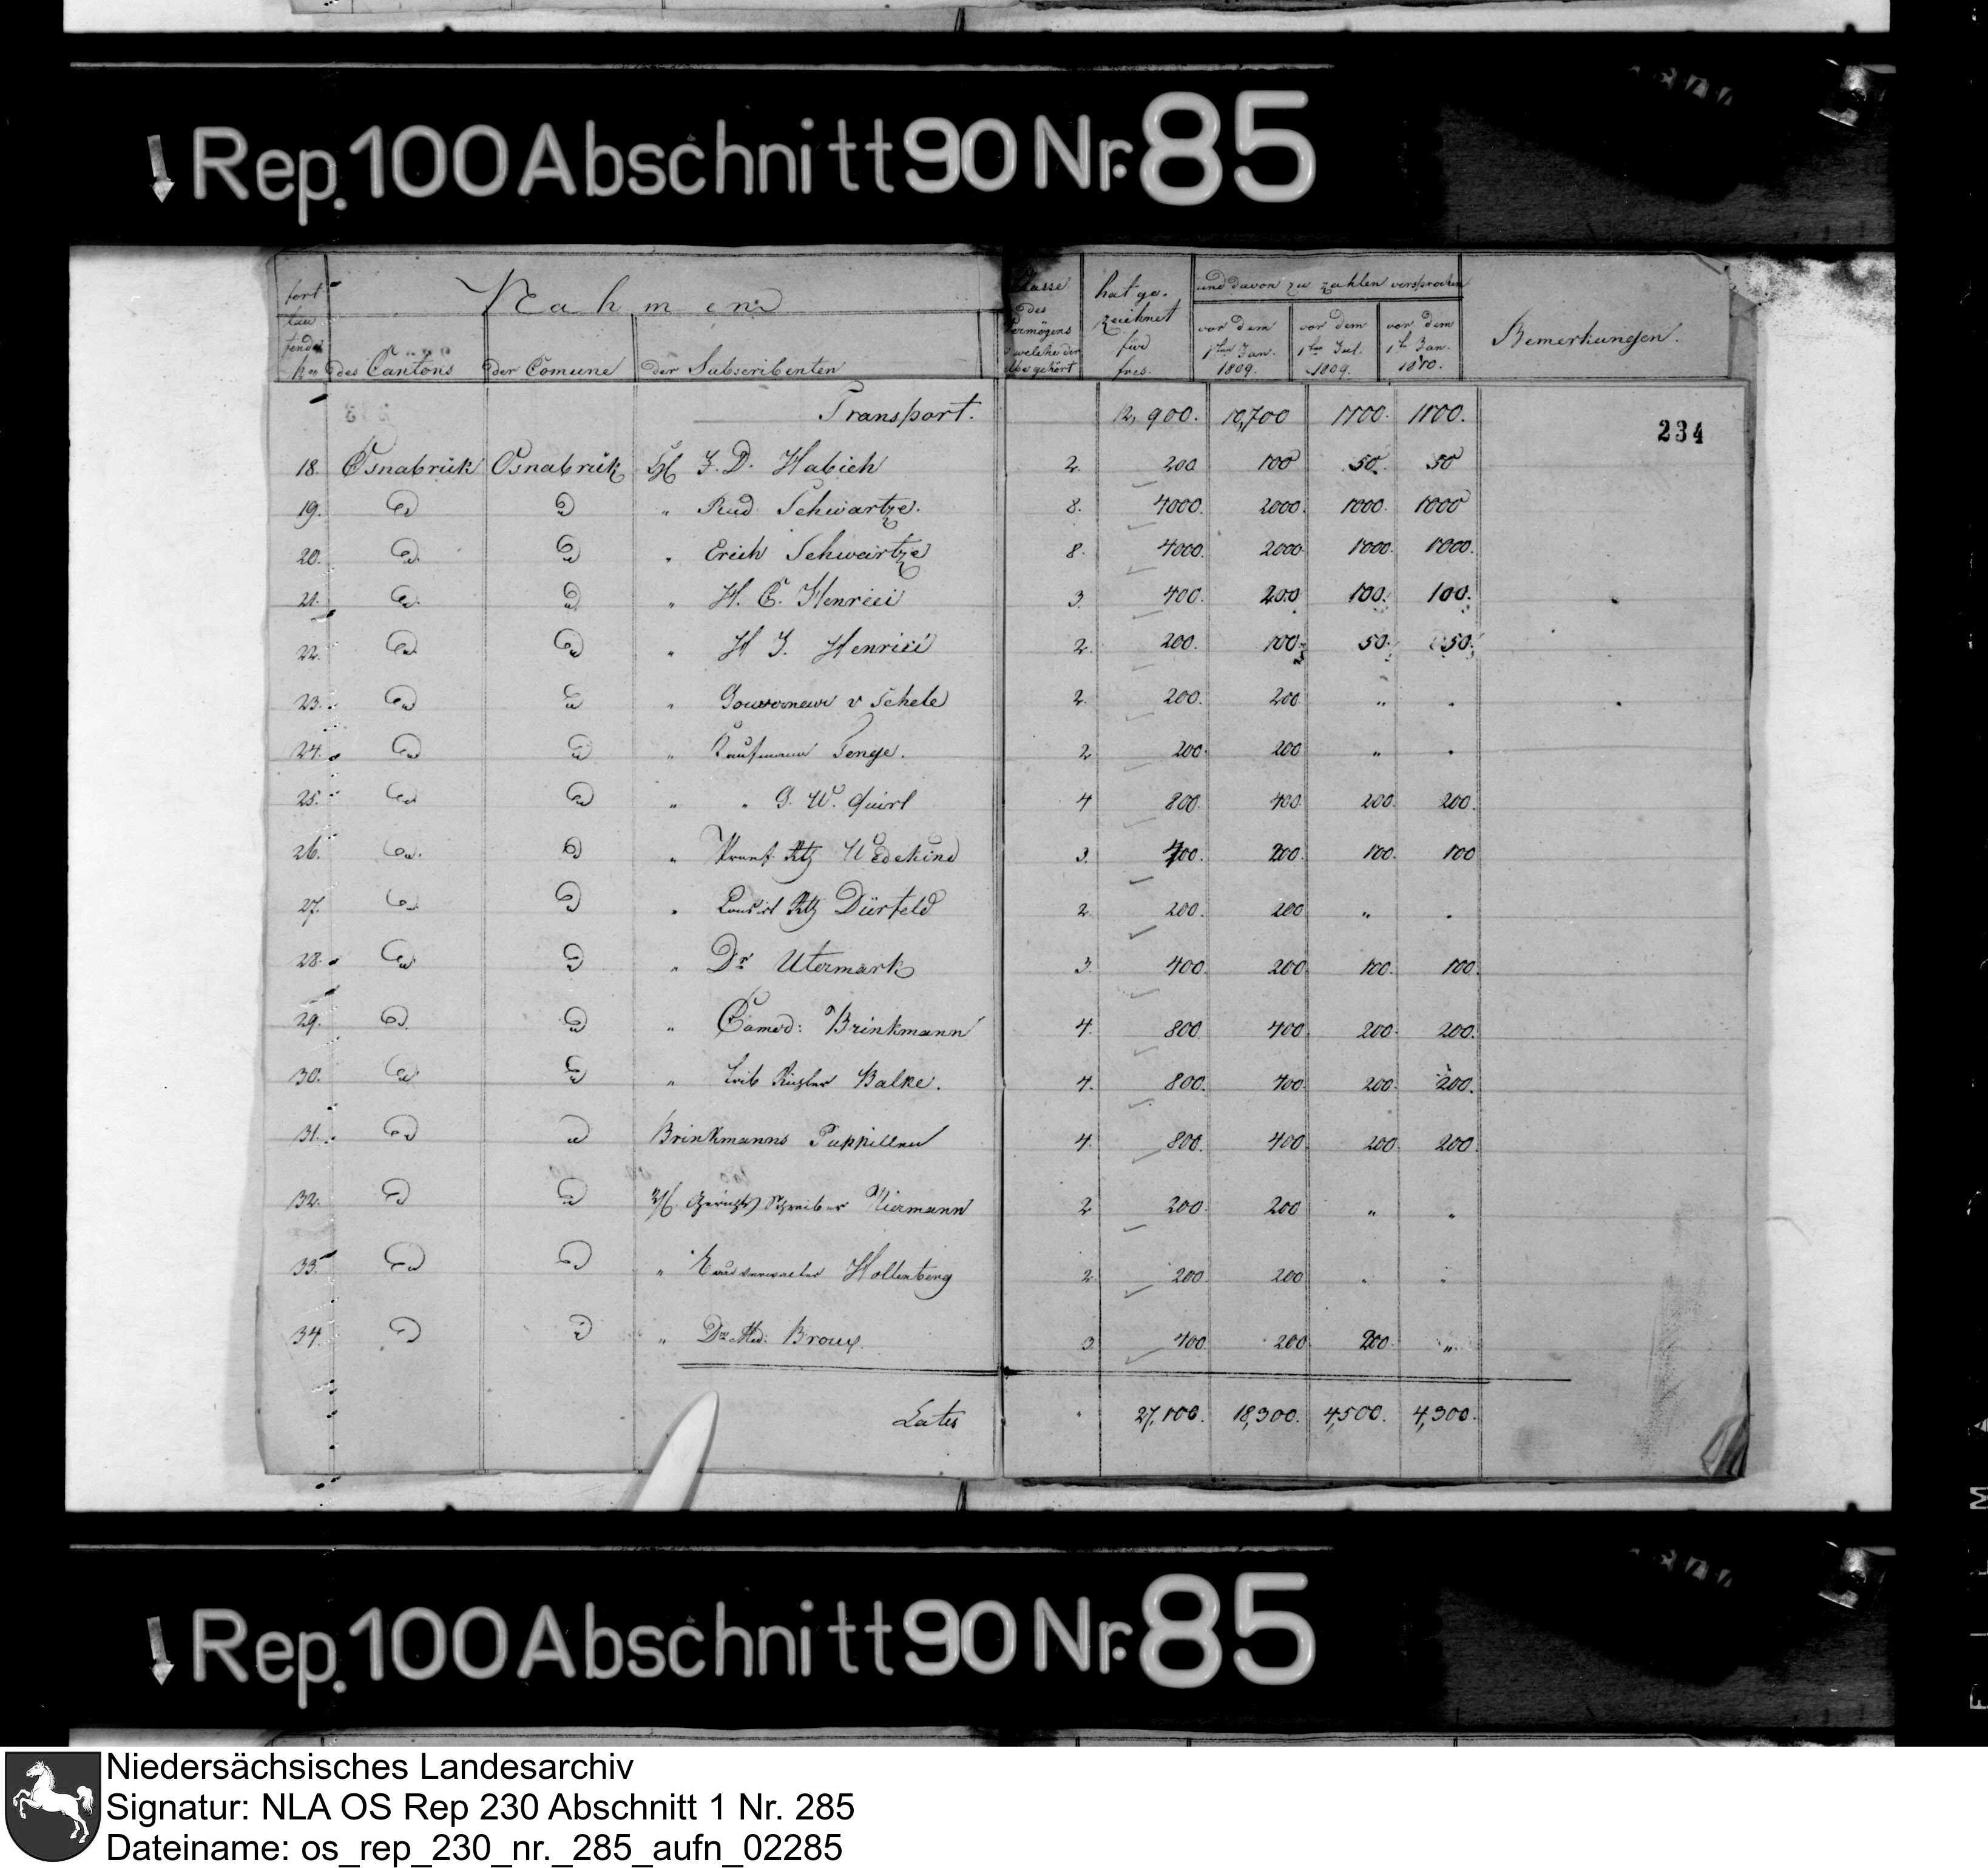 Rep. 100 Abschnitt 90 Nr. 85
fort lau fende Nro
Nahmen
des Cantons
der Comune
der Subscribenten
Classe des Vermögens welche der gehört
hat ge- zeichnet für frcs.
und davon zu zahlen versprochen
vor dem 1ten Jan. 1809.
vor dem 1ten Jul. 1809.
vor dem 1te Jan. 1810.
Bemerkungen.
234
Transport. 12,900. 10,700 1100. 1100.
18. Osnabrük Osnabrük H J. D. Habich 2. 200 100 50. 50
19. do do " Rud Schwartze. 8. 4000. 2000. 1000. 1000
20. do do " Erich Schwartze 8. 4000. 2000 1000. 1000.
21. do do " H. C. Henrici 3. 400. 200 100. 100.
22. do do " H J. Henrici 2. 200. 100 50. 50.
23. do do " Gouverneur v Schele 2. 200. 200 " "
24. do do " Kaufmann Tenge. 2 200. 200 " "
25. do do " " G. W. Quirl 4 800. 400 200. 200.
26. do do " Wedekind 3. 400. 200. 100. 100
27. do do " Dürfeld 2. 200. 200 " "
28. do do " Dr Utermark 3. 400. 200 100. 100.
29. do do " Brinkmann 4. 800 400 200. 200.
30. do do " Balke. 4. 800. 400 200. 200.
31. do do Brinkmanns Puppillen 4. 800. 400 200 200.
32. do do H. Gerichts Schreiber Niermann 2 200. 200 " "
33. do do " Hollenberg 2. 200 200 " "
34. do do " Dr. Med: 3. 400. 200 200. "
Latus 27,100. 18,300. 4,500. 4,300.
Rep. 100 Abschnitt 90 Nr. 85
Niedersächsisches Landesarchiv
Signatur: NLA OS Rep 230 Abschnitt 1 Nr. 285
Dateiname: os_rep_230_nr._285_aufn_02285